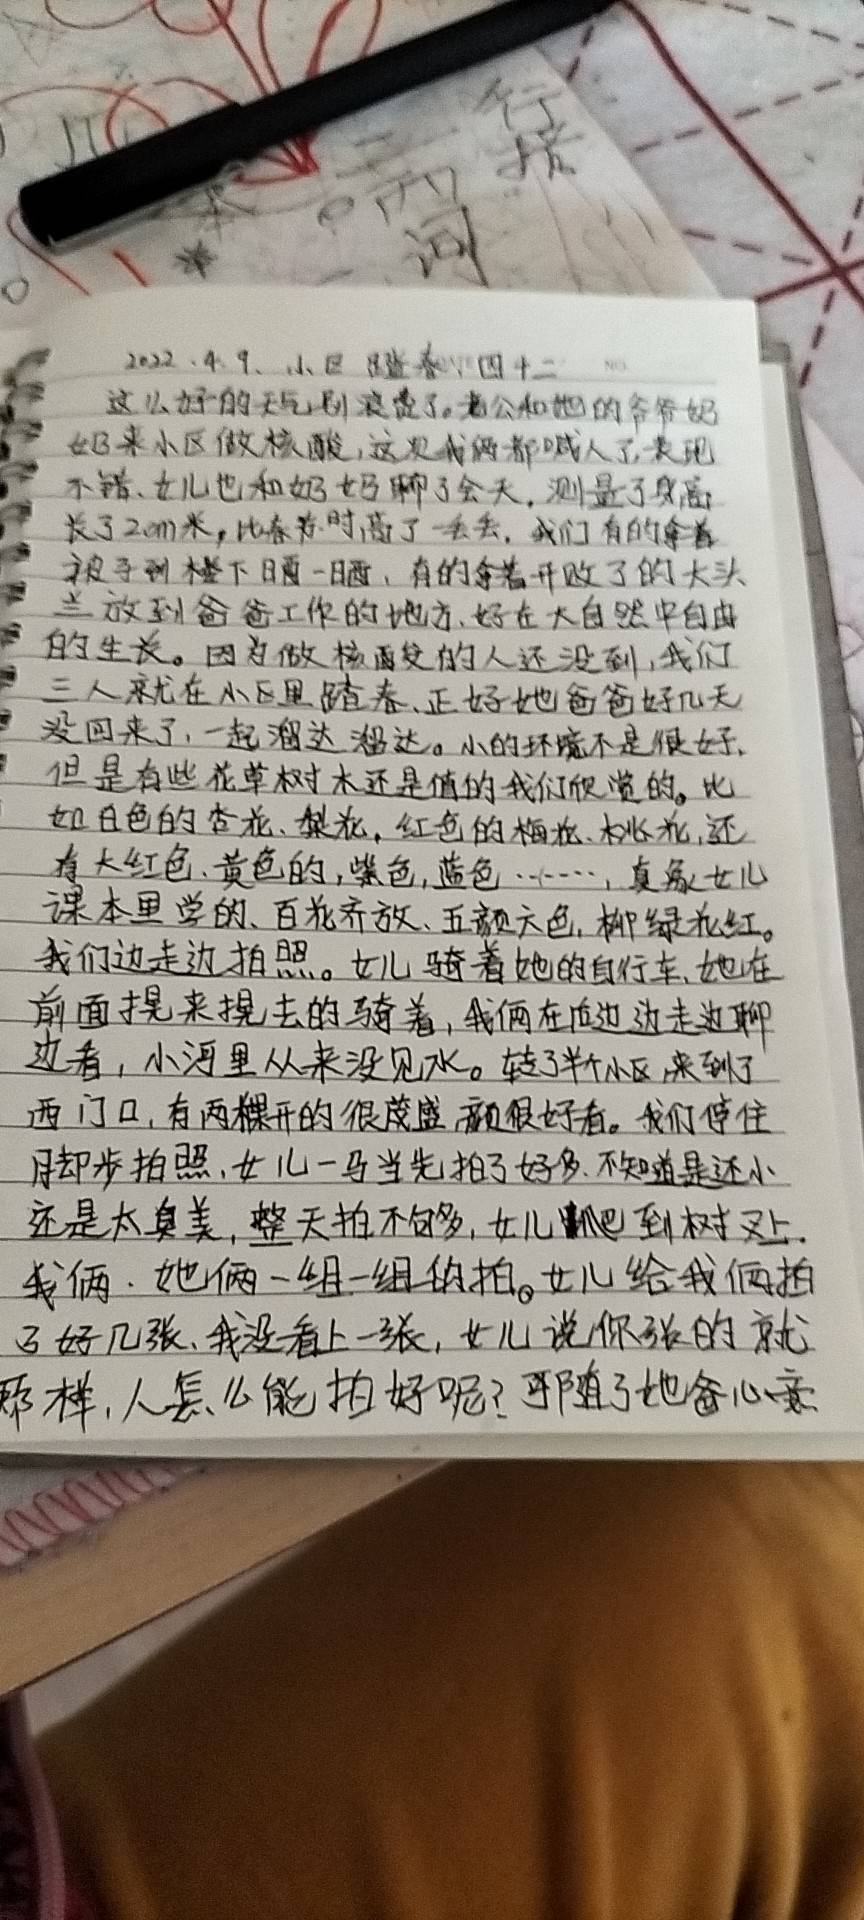 行楷
词
2022.4.9、小区踏春、四十二
这么好的天气别浪费了。老公和她的爷爷奶
奶来小区做核酸,这次我俩都喊人了,表现
不错、女儿也和奶奶聊了会天,测量了身高
长了2cm米,比春节时,高了一丢丢,我们有的拿着
被子到楼下晒一晒,有的拿着开败了的大头
兰放到爸爸工作的地方、好在大自然中自由
的生长。因为做核酸的人还没到,我们
三人就在小区里踏春、正好她爸爸好几天
没回来了,一起溜达溜达。小的环境不是很好,
但是有些花草树木还是值的我们欣赏的。比
如白色的杏花、梨花,红色的梅花、桃花,还
有大红色、黄色的,紫色,蓝色……,真象女儿
课本里学的、百花齐放、五颜六色,柳绿花红。
我们边走边拍照。女儿骑着她的自行车、她在
前面挠来挠去的骑着,我俩在后边边走边聊
边看,小河里从来没见水。转了半个小区,来到了
西门口,有两棵开的很茂盛,颜很好看。我们停住
脚步拍照,女儿一马当先拍了好多、不知道是还小
还是太臭美,整天拍不够,女儿爬到树叉上.
我俩、她俩一组一组的拍。女儿给我俩拍
了好几张、我没看上一张,女儿说你张的就
那样,人怎么能拍好呢?可随了她爸心意